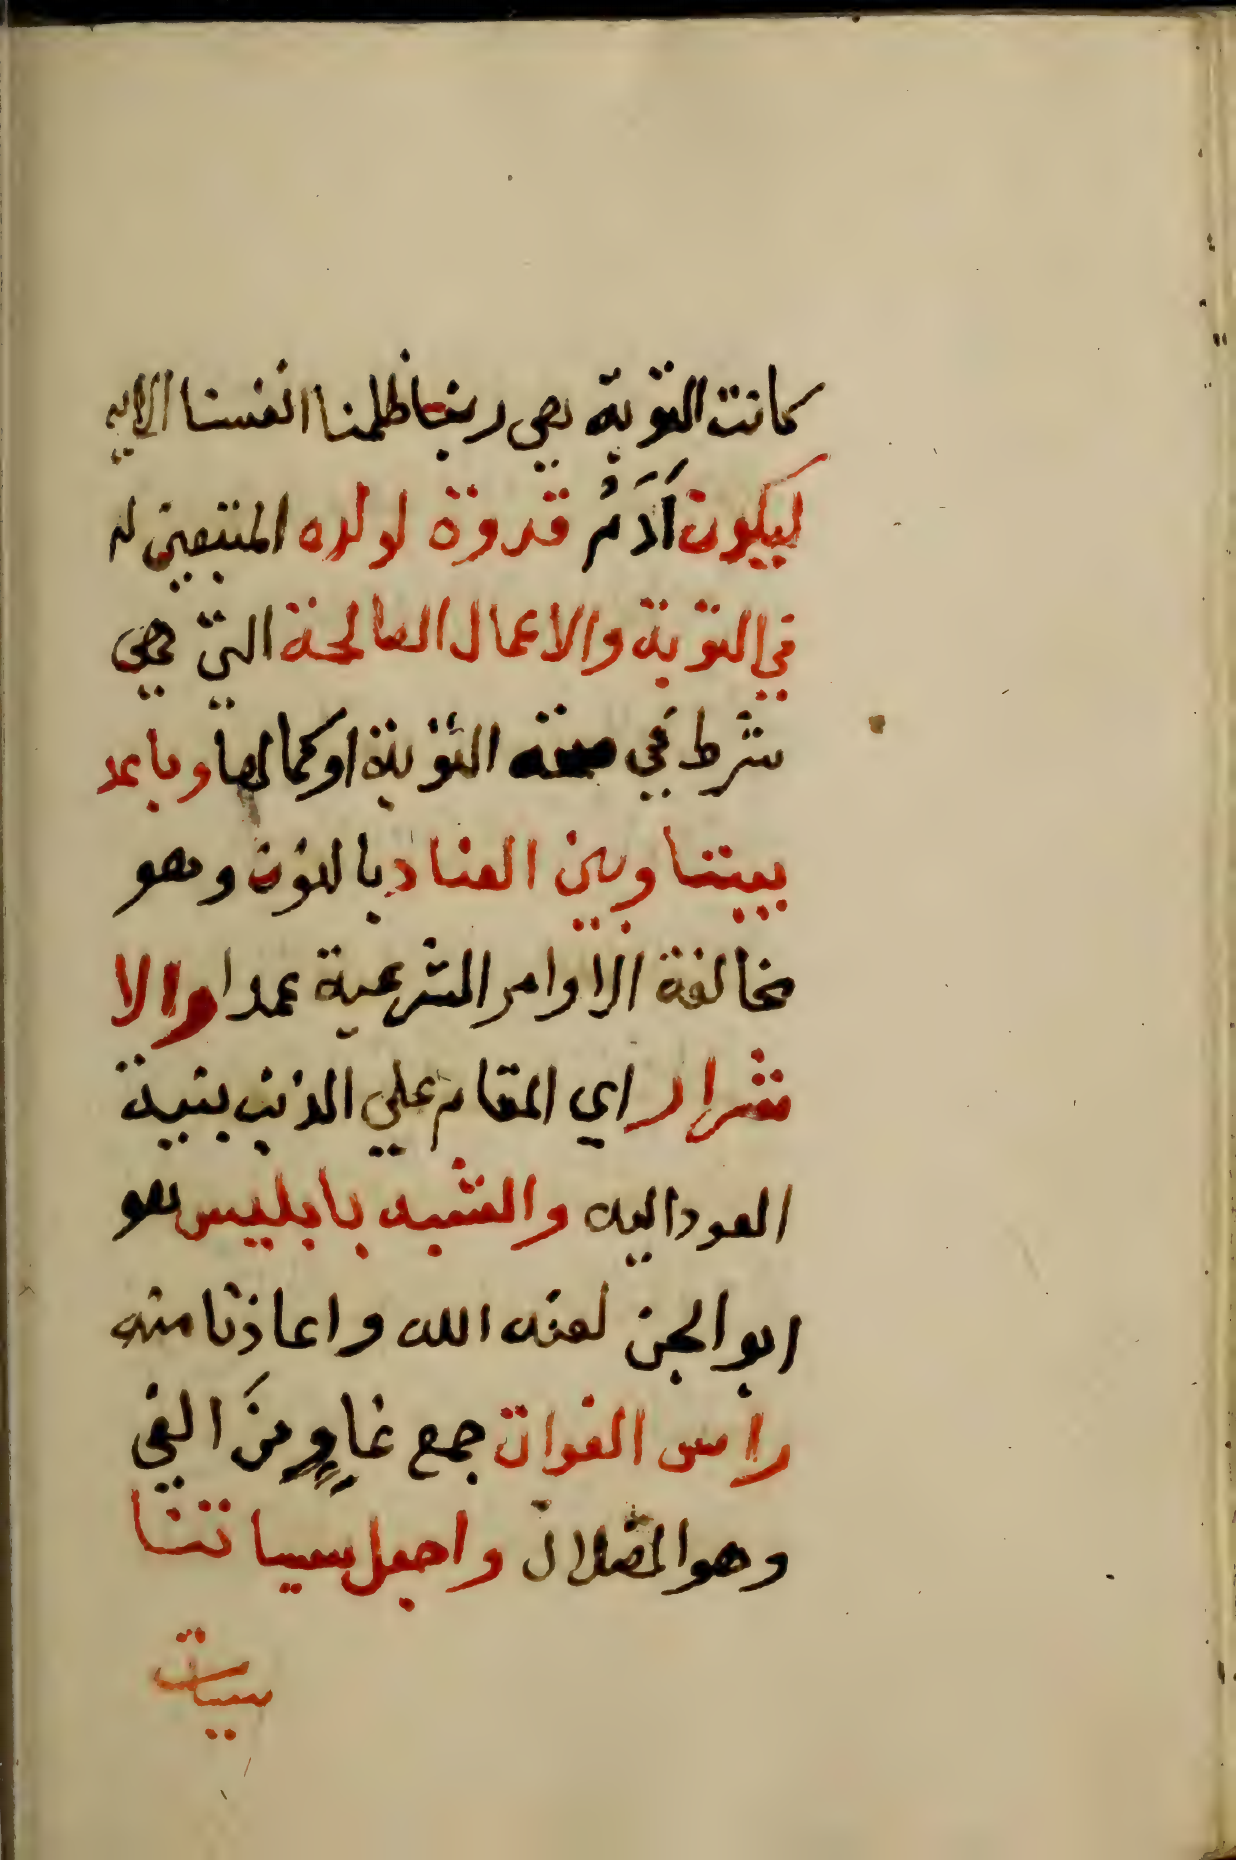 كانت التوبة هي ربنا ظلمنا انفسنا الايه
ليكون اَدَمُ قدوة لولده المتبعين له
في التوبة والاعمال الصالحة التي هي
شرط في التوبة او كمالها وباعد
بيننا وبين العناد بالنون وهو
مخالفة الاوامر الشرعية عمدا والا
شرار اي المقام علي الذنب بنية
العود اليه والشبه بابليس هو
ابو الجن لعنه الله واعاذنا منه
راس الغوات جمع غاوٍ منَ الغي
وهو الضلال واجعل سيا تنا
سيات